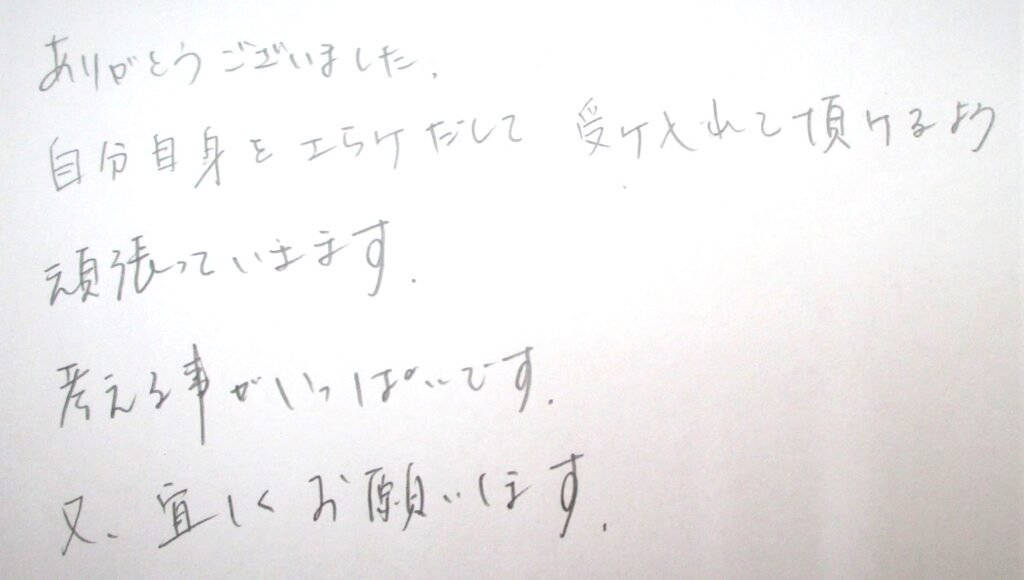 ありがとうございました.
自分自身をエらケだして 受ケ入れて頂けるよう
頑張っていきます.
考える事がいっぱいです.
又、宜しくお願いします.